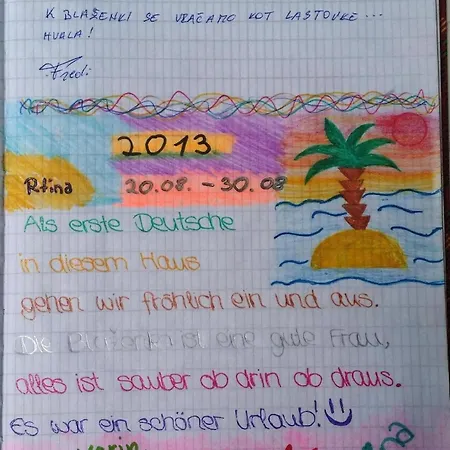 K BLAŽENKI SE VRAČAMO KOT LASTOVKE...
HVALA!
Fredi
2013
Rtina 20.08. - 30.08
Als erste Deutsche
in diesem Haus
gehen wir fröhlich ein und aus.
Die Blaženka ist eine gute Frau,
alles ist sauber ob drin ob draus.
Es war ein schöner Urlaub!